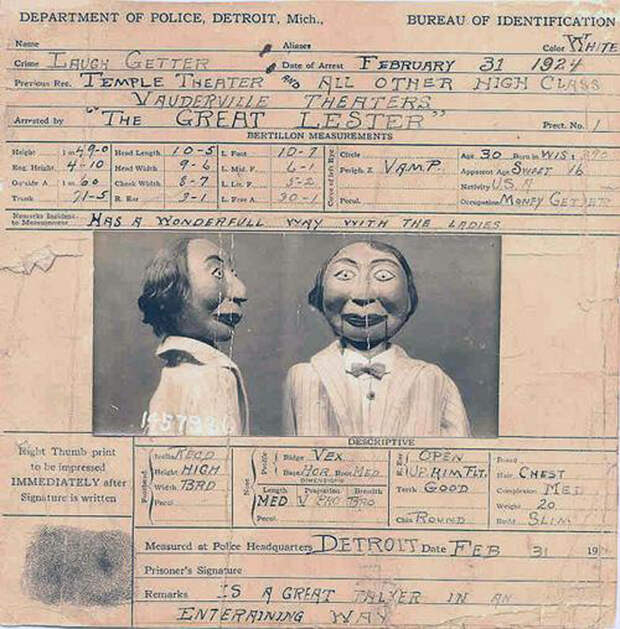 DEPARTMENT OF POLICE, DETROIT, Mich., BUREAU OF IDENTIFICATION
Name Aliases Color WHITE
Crime LAUGH GETTER Date of Arrest FEBRUARY 31 1924
Previous Rec. TEMPLE THEATER AND ALL OTHER HIGH CLASS
VAUDERVILLE THEATERS
Arrested by "THE GREAT LESTER" Prect. No. 1
BERTILLON MEASUREMENTS
Height 1 m 49-0 Head Length 10-5 L. Foot 10-7 Circle Age 30 Born in WIS
Eng. Height 4-10 Head Width 9-6 L. Mid. F. 6-1 Periph. Z VAMP. Apparent Age SWEET 16
Outside A 1 m 60 Cheek Width 8-7 L. Lit. F. 5-2 Nativity U.S.A
Trunk 71-5 R. Ear 3-1 L. Fore A 30-1 Pecul. Occupation MONEY GETTER
Remarks Incident to Measurements HAS A WONDERFULL WAY WITH THE LADIES
DESCRIPTIVE
Right Thumb print
to be impressed
IMMEDIATELY after
Signature is written
Forehead Inclin. RECD Nose Profile Ridge VEX R. Ear OPEN Beard
Height HIGH Base HOR. Root MED UP. RIM FLT. Hair CHEST
Width BRD DIMENSIONS Teeth GOOD Complexion MED
Length Projection Breadth Weight 20
Pecul. MED BRO
Pecul. Chin ROUND Build SLIM
Measured at Police Headquarters, DETROIT Date FEB 31 19
Prisoner's Signature
Remarks IS A GREAT TALKER IN AN
ENTERAINING WAY